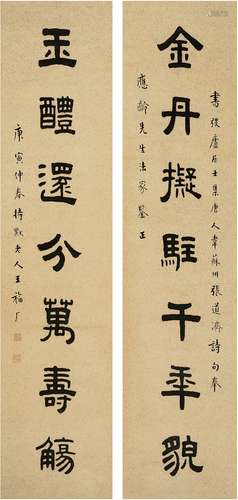 金丹擬駐千年貌
書張廬居士集唐人韋蘇州張道濟詩句奉
應齡先生法家鑒正
玉醴還分萬壽觴
庚寅仲春持默老人王福厂